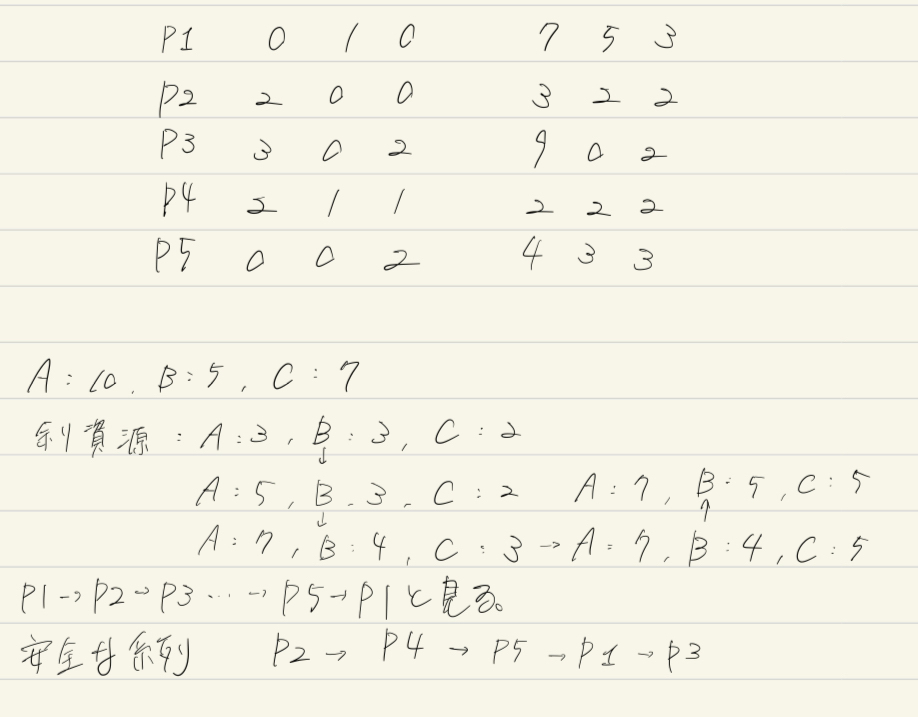 P1 0 1 0 7 5 3
P2 2 0 0 3 2 2
P3 3 0 2 9 0 2
P4 2 1 1 2 2 2
P5 0 0 2 4 3 3
A:10, B:5, C:7
剰資源:A:3, B:3, C:2
↓
A:5, B.3, C:2 A:7, B:5, C:5
↓ ↑
A:7, B:4, C:3→A:7, B:4, C:5
P1→P2→P3…→P5→P1と見る。
安全な系列 P2→P4→P5→P1→P3